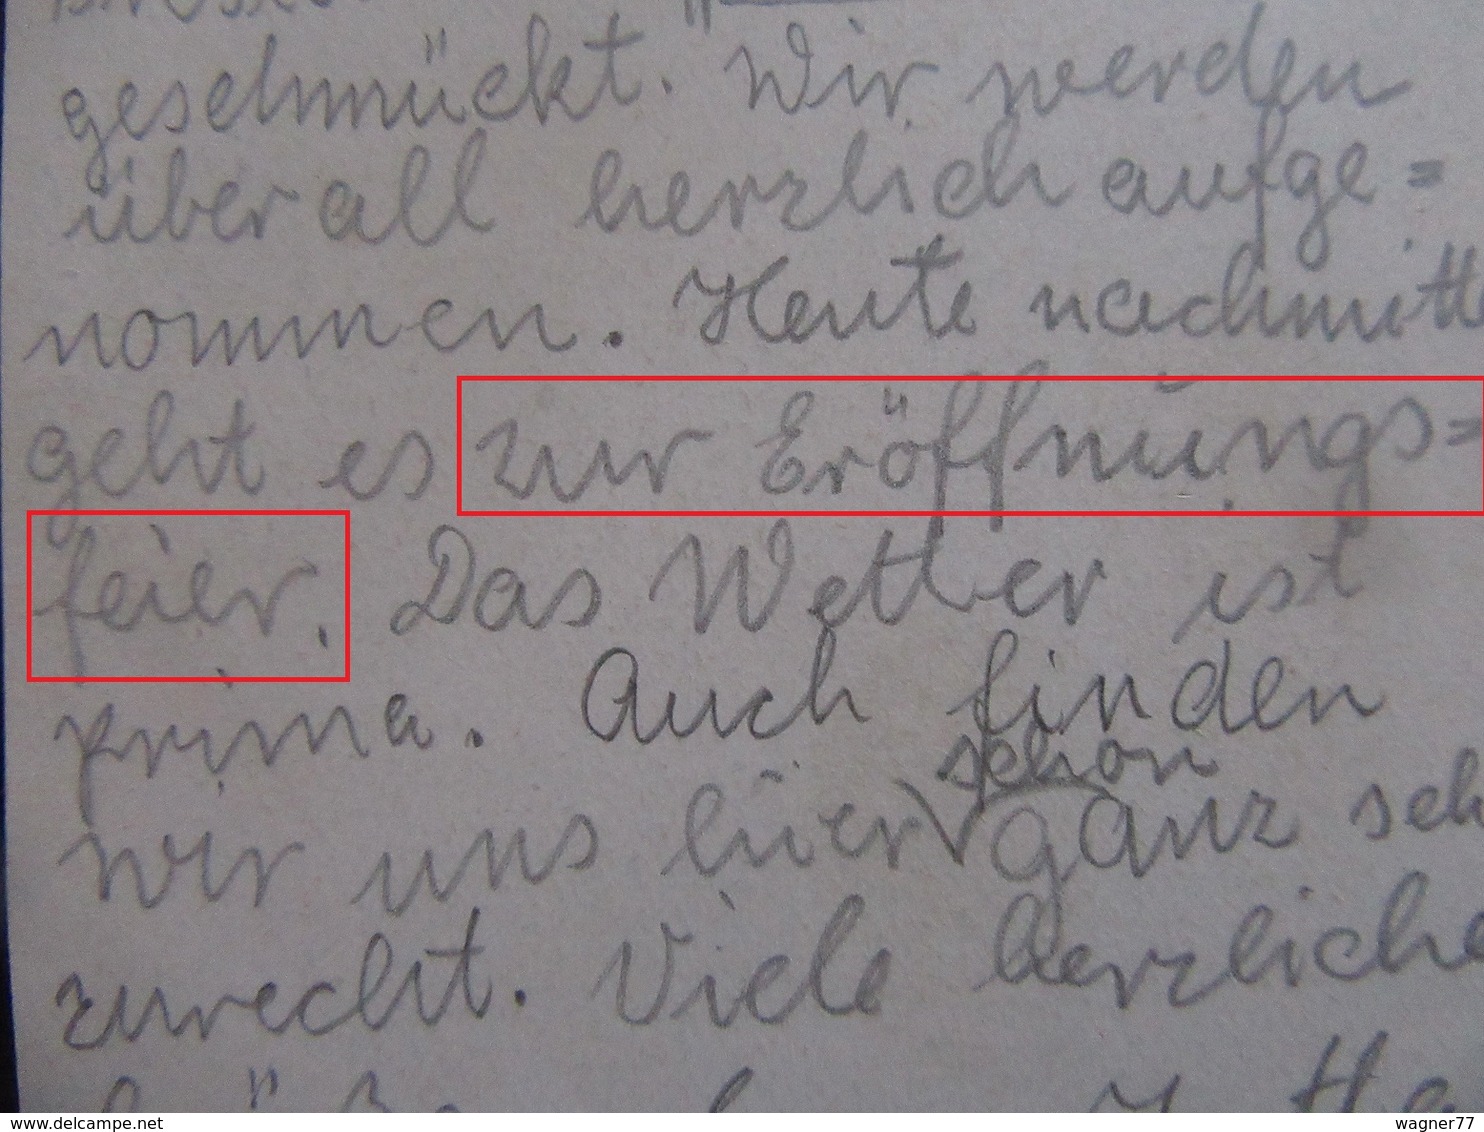 geschmückt. Wir werden
überall herzlich aufge=
nommen. Heute nachmitt
geht es zur Eröffnungs=
feier. Das Wetter ist
prima. Auch finden
schon
wir uns hier ganz seh
zurecht. Viele herzliche
delcampe.net
wagner77